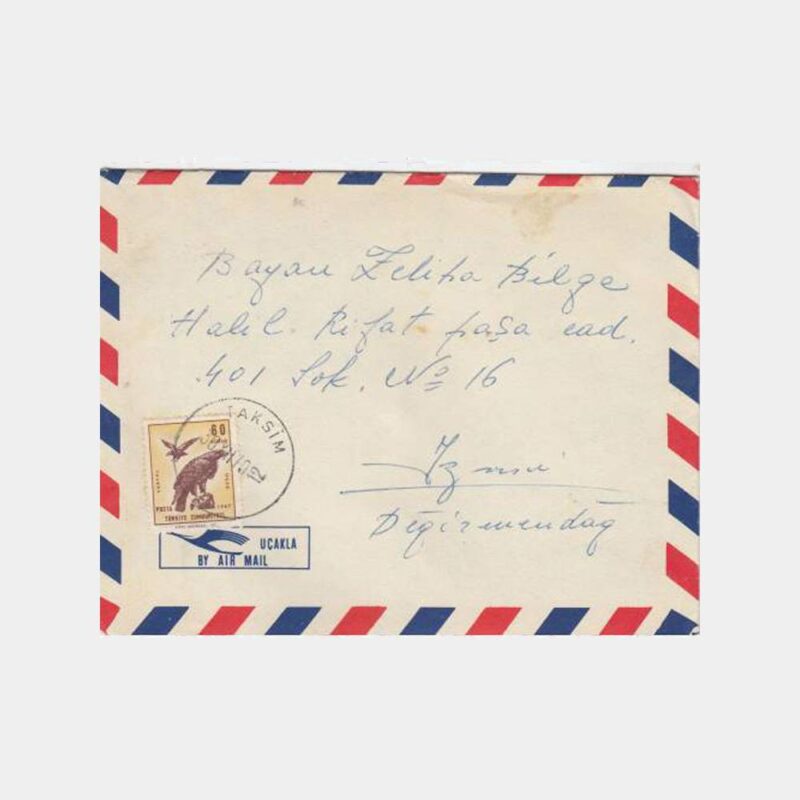 Bayan Zeliha Bilge
Halil. Rifat paşa cad.
401 Sok. No 16
İzmir
Değirmendağ
TAKSİM
60
POSTA
1967
TÜRKİYE CUMHURİYETİ
UÇAKLA
BY AIR MAIL